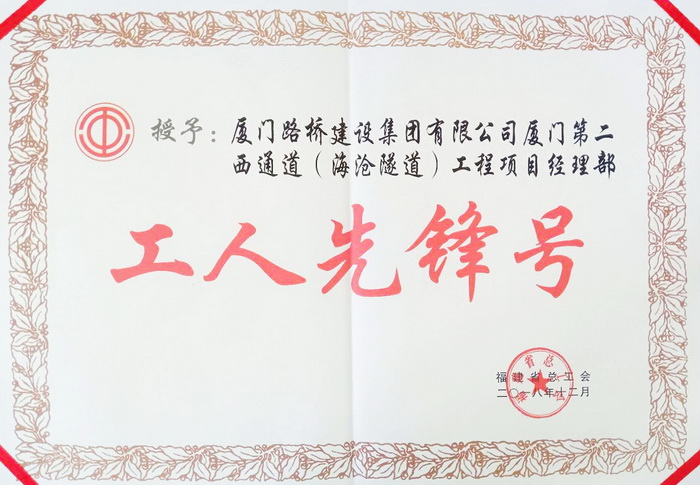 授予：厦门路桥建设集团有限公司厦门第二
西通道（海沧隧道）工程项目经理部
工人先锋号
福建省总工会
二〇一八年十二月